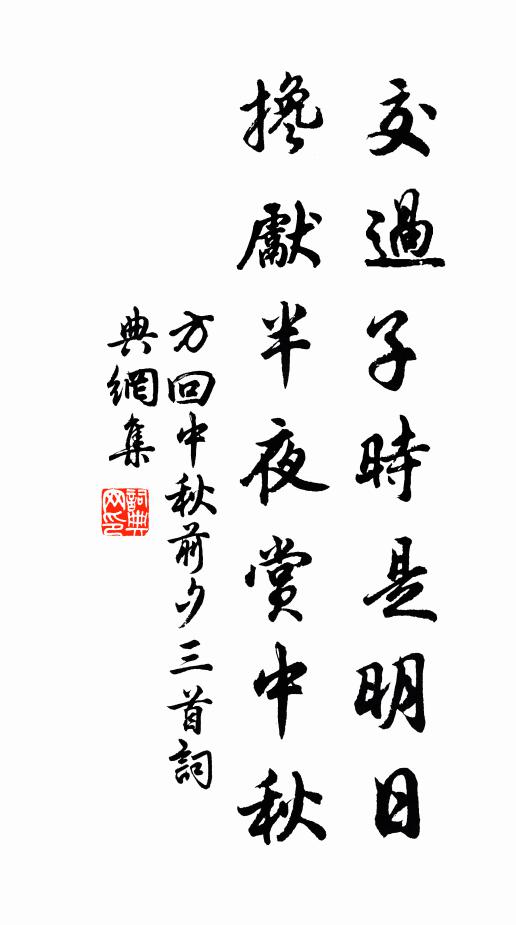 交過子時是明日
攙獻半夜賞中秋
方回中秋前夕三首詞
典網集
詞典网印